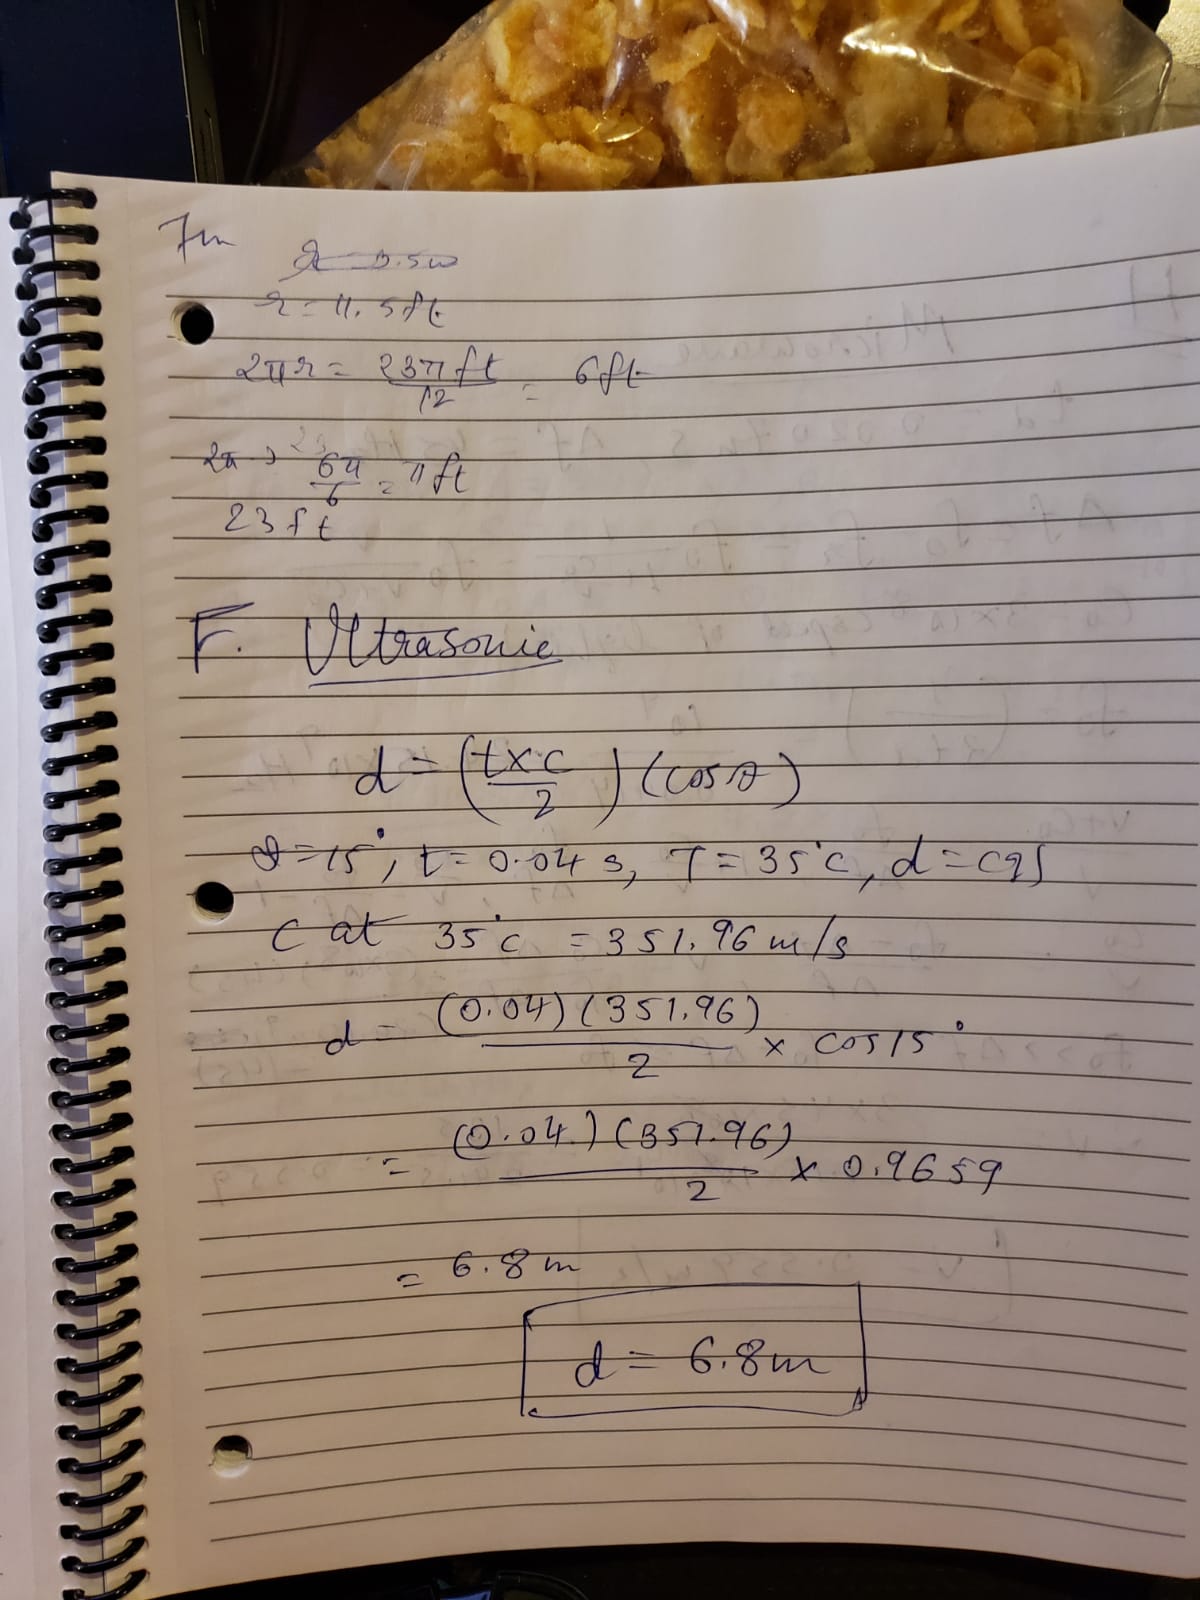 7m
r = 11.5ft
2πr = 23π ft / 12 = 6ft
6π / 6 = π ft
23 ft
F. Ultrasonic
d = (t×c / 2) (cosθ)
θ=15°, t= 0.04 s, T = 35°c, d = cqs
C at 35°c = 351.96 m/s
d = (0.04) (351.96) / 2 × cos15°
= (0.04) (351.96) / 2 × 0.9659
= 6.8 m
d = 6.8m